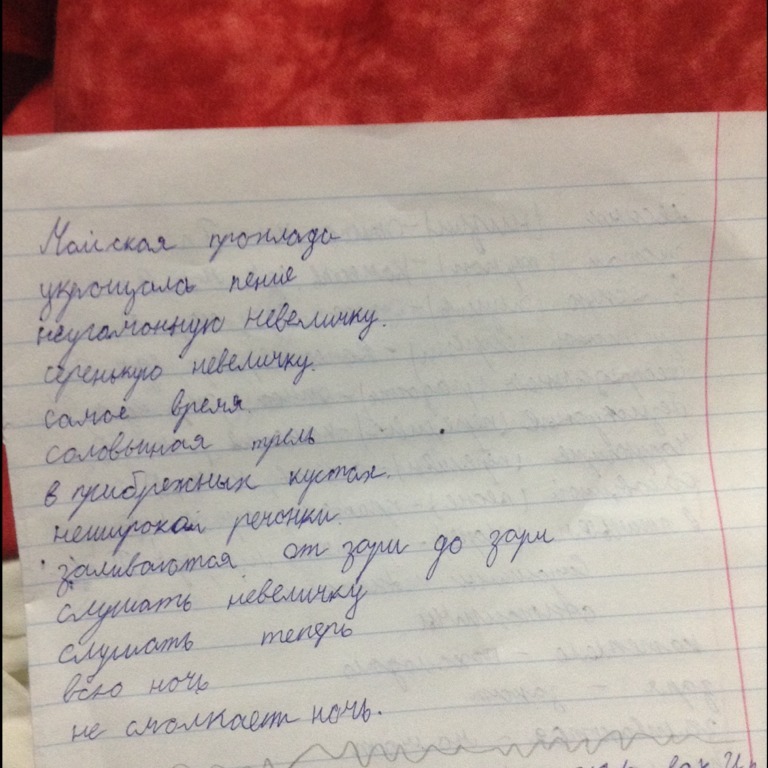 Майская прохлада
укрощала пение
неугомонную невеличку.
серенькую невеличку.
самое время.
соловьиная трель
в прибрежных кустах.
неширокой речонки.
заливаются от зари до зари
слушать невеличку
слушать теперь
всю ночь
не смолкает ночь.